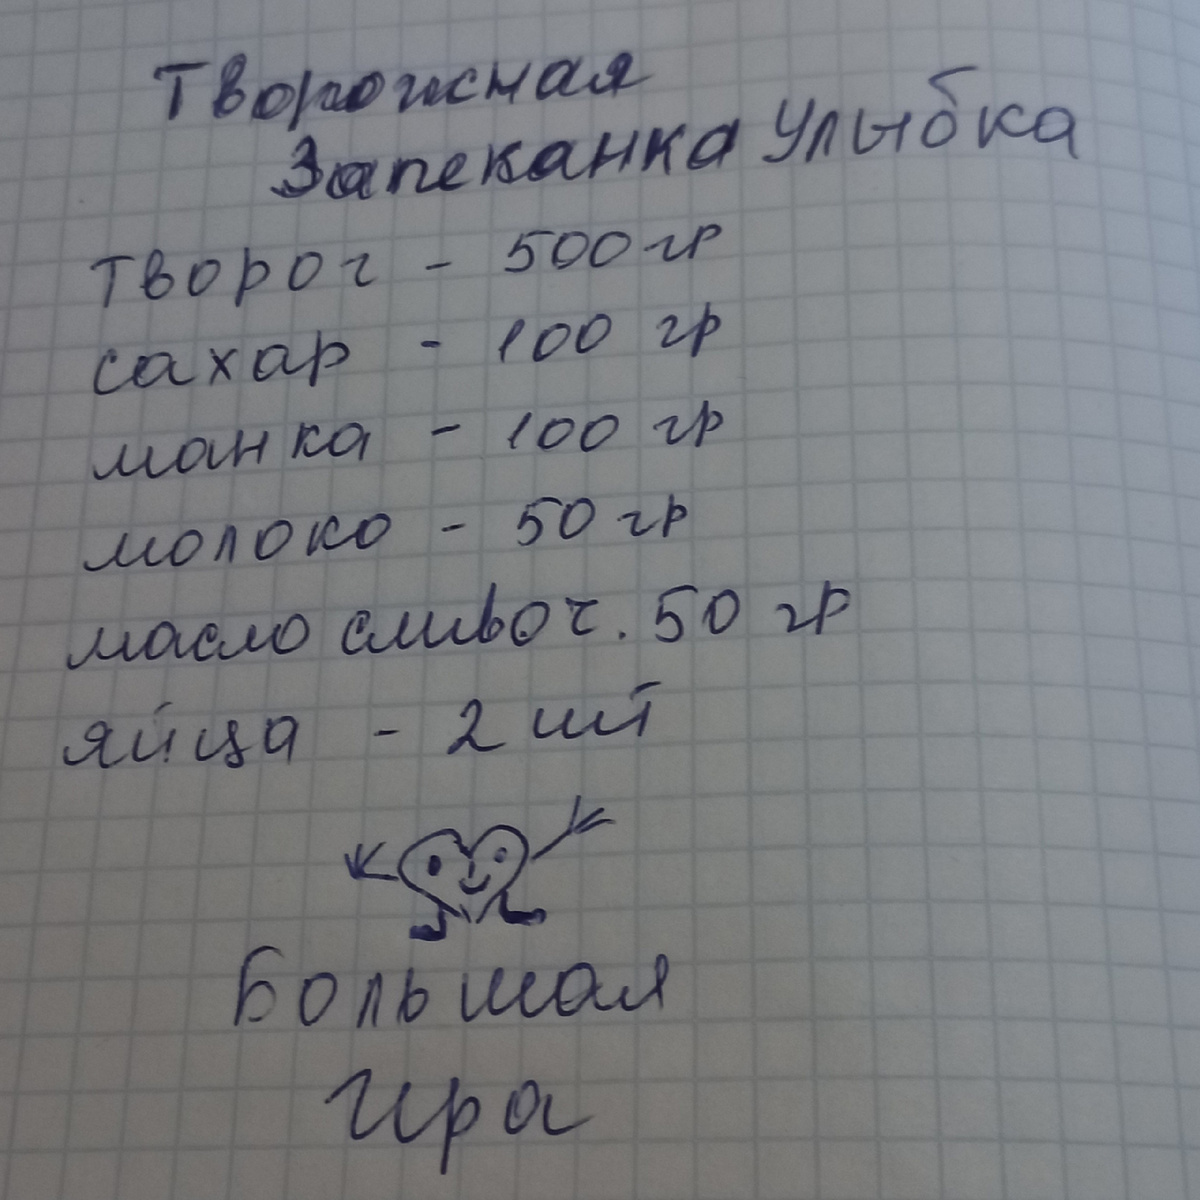 Творожная
Запеканка Улыбка
творог - 500 гр
сахар - 100 гр
манка - 100 гр
молоко - 50 гр
масло сливоч. 50 гр
яйца - 2 шт
Большая
игра